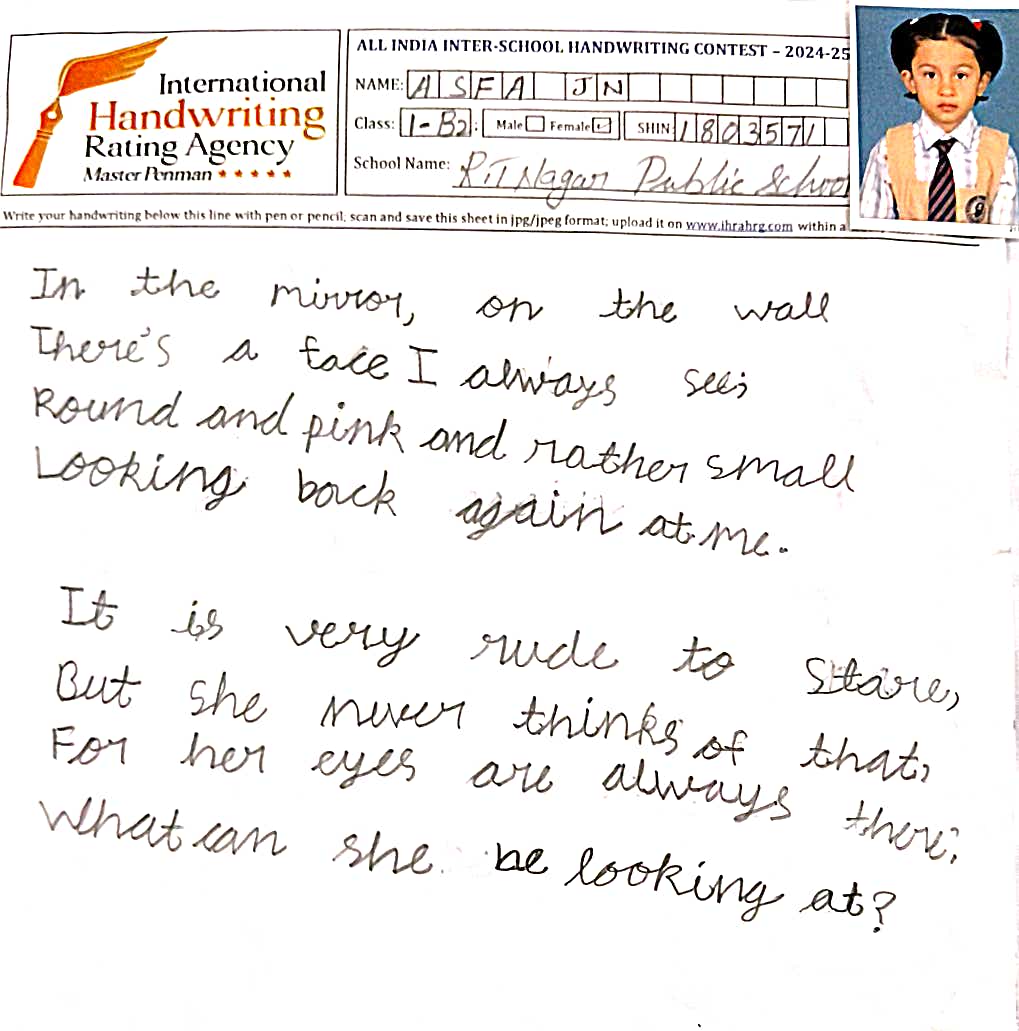 International
Handwriting
Rating Agency
Master Penman ★★★★★
ALL INDIA INTER-SCHOOL HANDWRITING CONTEST – 2024-25
NAME: ASFA JN
Class: I-B2 Male Female SHIN 1803571
School Name: R.T Nagar Public School
Write your handwriting below this line with pen or pencil; scan and save this sheet in jpg/jpeg format; upload it on www.ihrahrg.com within a
In the mirror, on the wall
There's a face I always see;
Round and pink and rather small
Looking back again at me.
It is very rude to stare,
But she never thinks of that,
For her eyes are always there;
What can she be looking at?